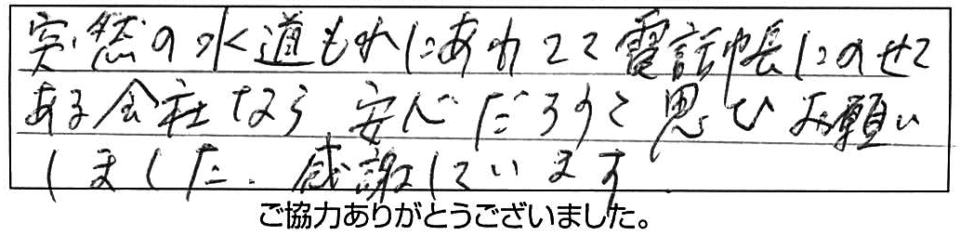 突然の水道もれにあわてて電話帳にのせて
ある会社なら安心だろうと思ひお願い
しました。感謝しています
ご協力ありがとうございました。